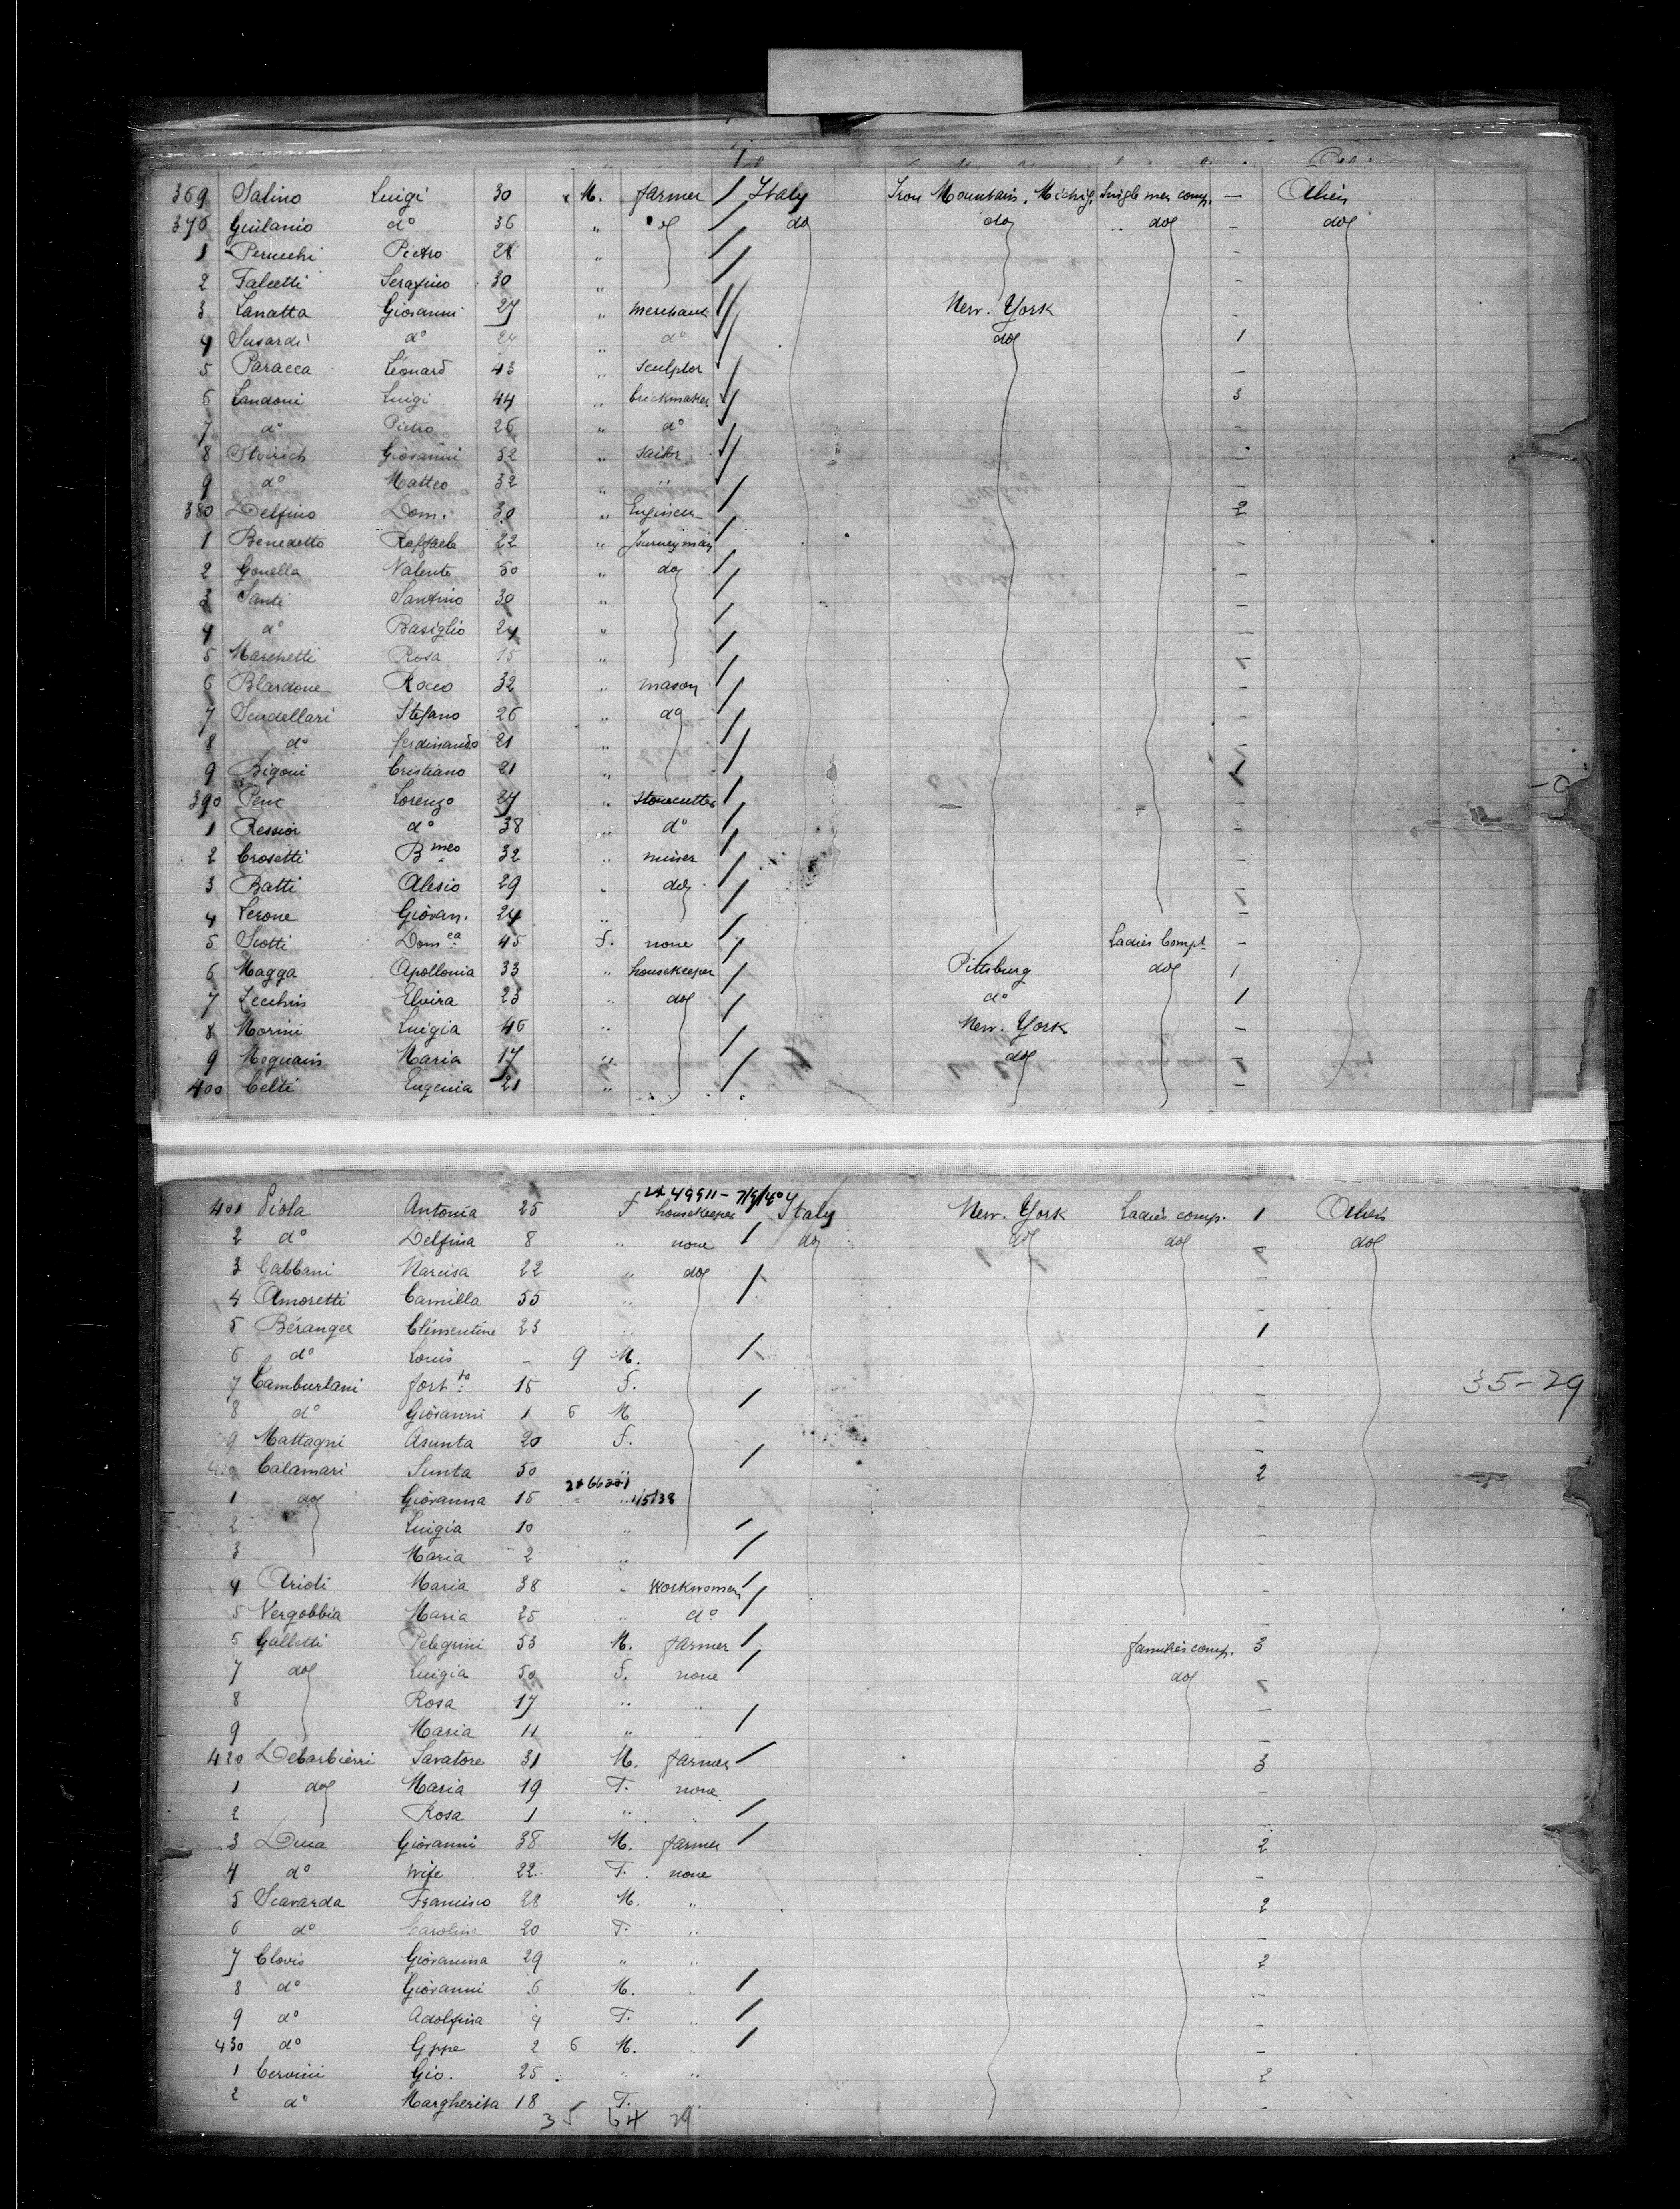 369 Salino Luigi 30 M. farmer Italy Iron Mountain, Michig. Single men comp. —
370 Giulanio d° 36 " do do do do — do
1 Perucchi Pietro 28 " -
2 Falcetti Serafino 30 " -
3 Lanatta Giovanni 27 " merchant New. York -
4 Susardi d° 24 " d° do 1
5 Paracca Léonard 43 " sculptor —
6 Landoni Luigi 44 " brickmaker 3
7 d° Pietro 26 " d° -
8 Giovanni 52 " sailor -
9 d° Matteo 32 " " -
380 Delfino Dom. 30 " Engineer 2
1 Benedetto Raffaele 22 " Journeyman -
2 Gonella Valente 50 " do -
3 Santi Santino 30 " -
4 d° Basiglio 24 " —
5 Marchetti Rosa 15 " -
6 Blardone Rocco 32 " mason -
7 Scudellari Stefano 26 " do -
8 d° ferdinando 21 " -
9 Bigoni Cristiano 21 "
390 Penc Lorenzo 27 " Stonecutter -
1 Ressior d° 38 " d° -
2 Crosetti Bmeo 32 " miner -
3 Batti Alesio 29 " do -
4 Lerone Giovan. 24 " -
5 Scotti Domca 45 F. none Ladies Compt. -
6 Magga Apollonia 33 " housekeeper Pittsburg do 1
7 Zecchin Elvira 23 " do d° 1
8 Morini Luigia 46 " New. York -
9 Maria 17 " do -
400 Celti Eugenia 21 " -
2x 49911 - 7/9/40
401 Piola Antonia 25 F housekeeper Italy New. York Ladies comp. 1
2 d° Delfina 8 " none do do do - do
3 Gabbani Narcisa 22 " do -
4 Amoretti Camilla 55 " -
5 Béranger Clémentine 23 " 1
6 d° Louis - 9 M. -
7 Camburlani fort.ta 15 F. -
8 d° Giovanni 1 6 M -
9 Mattagni Asunta 20 F. -
Calamari Sunta 50 " 2
1 do Giovanna 15 " 1/5/38
2 Luigia 10 " -
3 Maria 2 " -
4 Arioli Maria 38 " Workwoman -
5 Vergobbia Maria 25 " d°
5 Galletti Pelegrini 53 M. farmer families comp. 3
7 do Luigia 50 F. none do -
8 Rosa 17 " " —
9 Maria 11 " -
420 Debarbierri Savatore 31 M. farmer 3
1 do Maria 19 F. none -
2 Rosa 1 " -
3 Giovanni 38 M. farmer 2
4 d° wife 22 F. none -
5 Scavarda Francisco 28 M. " 2
6 d° Caroline 20 F. " -
7 Clovis Giovanina 29 " " 2
8 d° Giovanni 6 M. " -
9 d° Adolfina 4 F. " -
430 d° Gppe 2 6 M. -
1 Cervini Gio. 25 " " 2
2 d° Margherita 18 F. " -
35 64 29
35-29